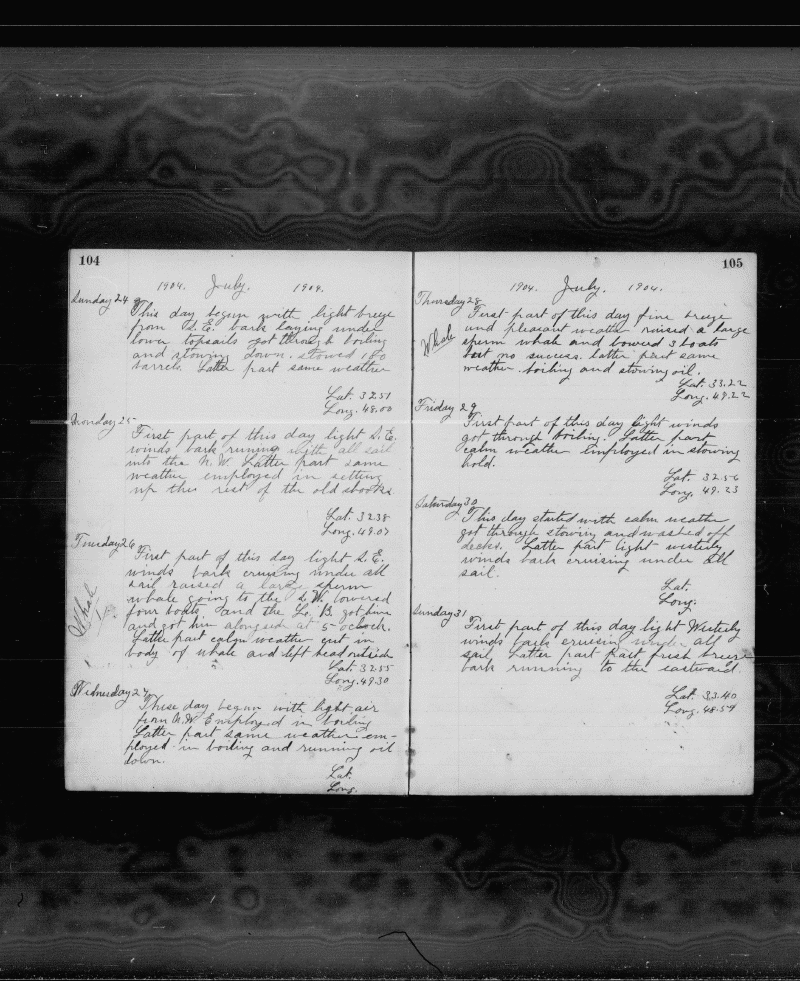 104
1904. July. 1904.
Sunday 24
This day begun with light breeze
from S.E. bark laying under
lower topsails got through boiling
and stowing down. stowed 180
barrels Latter part same weather
Lat. 32.51
Long. 48.00
Monday 25
First part of this day light S.E.
winds bark running with all sail
into the N.W. Latter part same
weather employed in setting
up the rest of the old shooks
Lat. 32.38
Long. 49.07
Tuesday 26
First part of this day light S.E.
winds bark cruising under all
sail raised a large sperm
whale going to the S.W. lowered
four boats and the L. B. got him
and got him alongsid at 5 oclock.
Latter part calm weather cut in
body of whale and left head outsid
Whale
Lat. 32.55
Long. 49.30
Wednesday 27
These day begun with light air
from N.W. Employed in boiling
Latter part same weather em-
ployed in boiling and running oil
down.
Lat.
Long.
105
1904. July. 1904.
Thursday 28
First part of this day fine breeze
and pleasant weather raised a large
sperm whale and lowered 3 boats
but no success. latter part same
weather. boiling and stowing oil.
Whale
Lat. 33.22
Long. 49.22
Friday 29
First part of this day light winds
got through boiling. Latter part
calm weather Employed in stowing
hold.
Lat. 32.56
Long. 49.23
Saturday 30
This day started with calm weather
got through stowing and washed off
decks. Latter part light westerly
winds bark cruising under all
sail.
Lat.
Long.
Sunday 31
First part of this day light Westerly
winds bark cruising under all
sail. Latter part part fresh breeze
bark running to the eastward.
Lat. 33.40
Long. 48.59